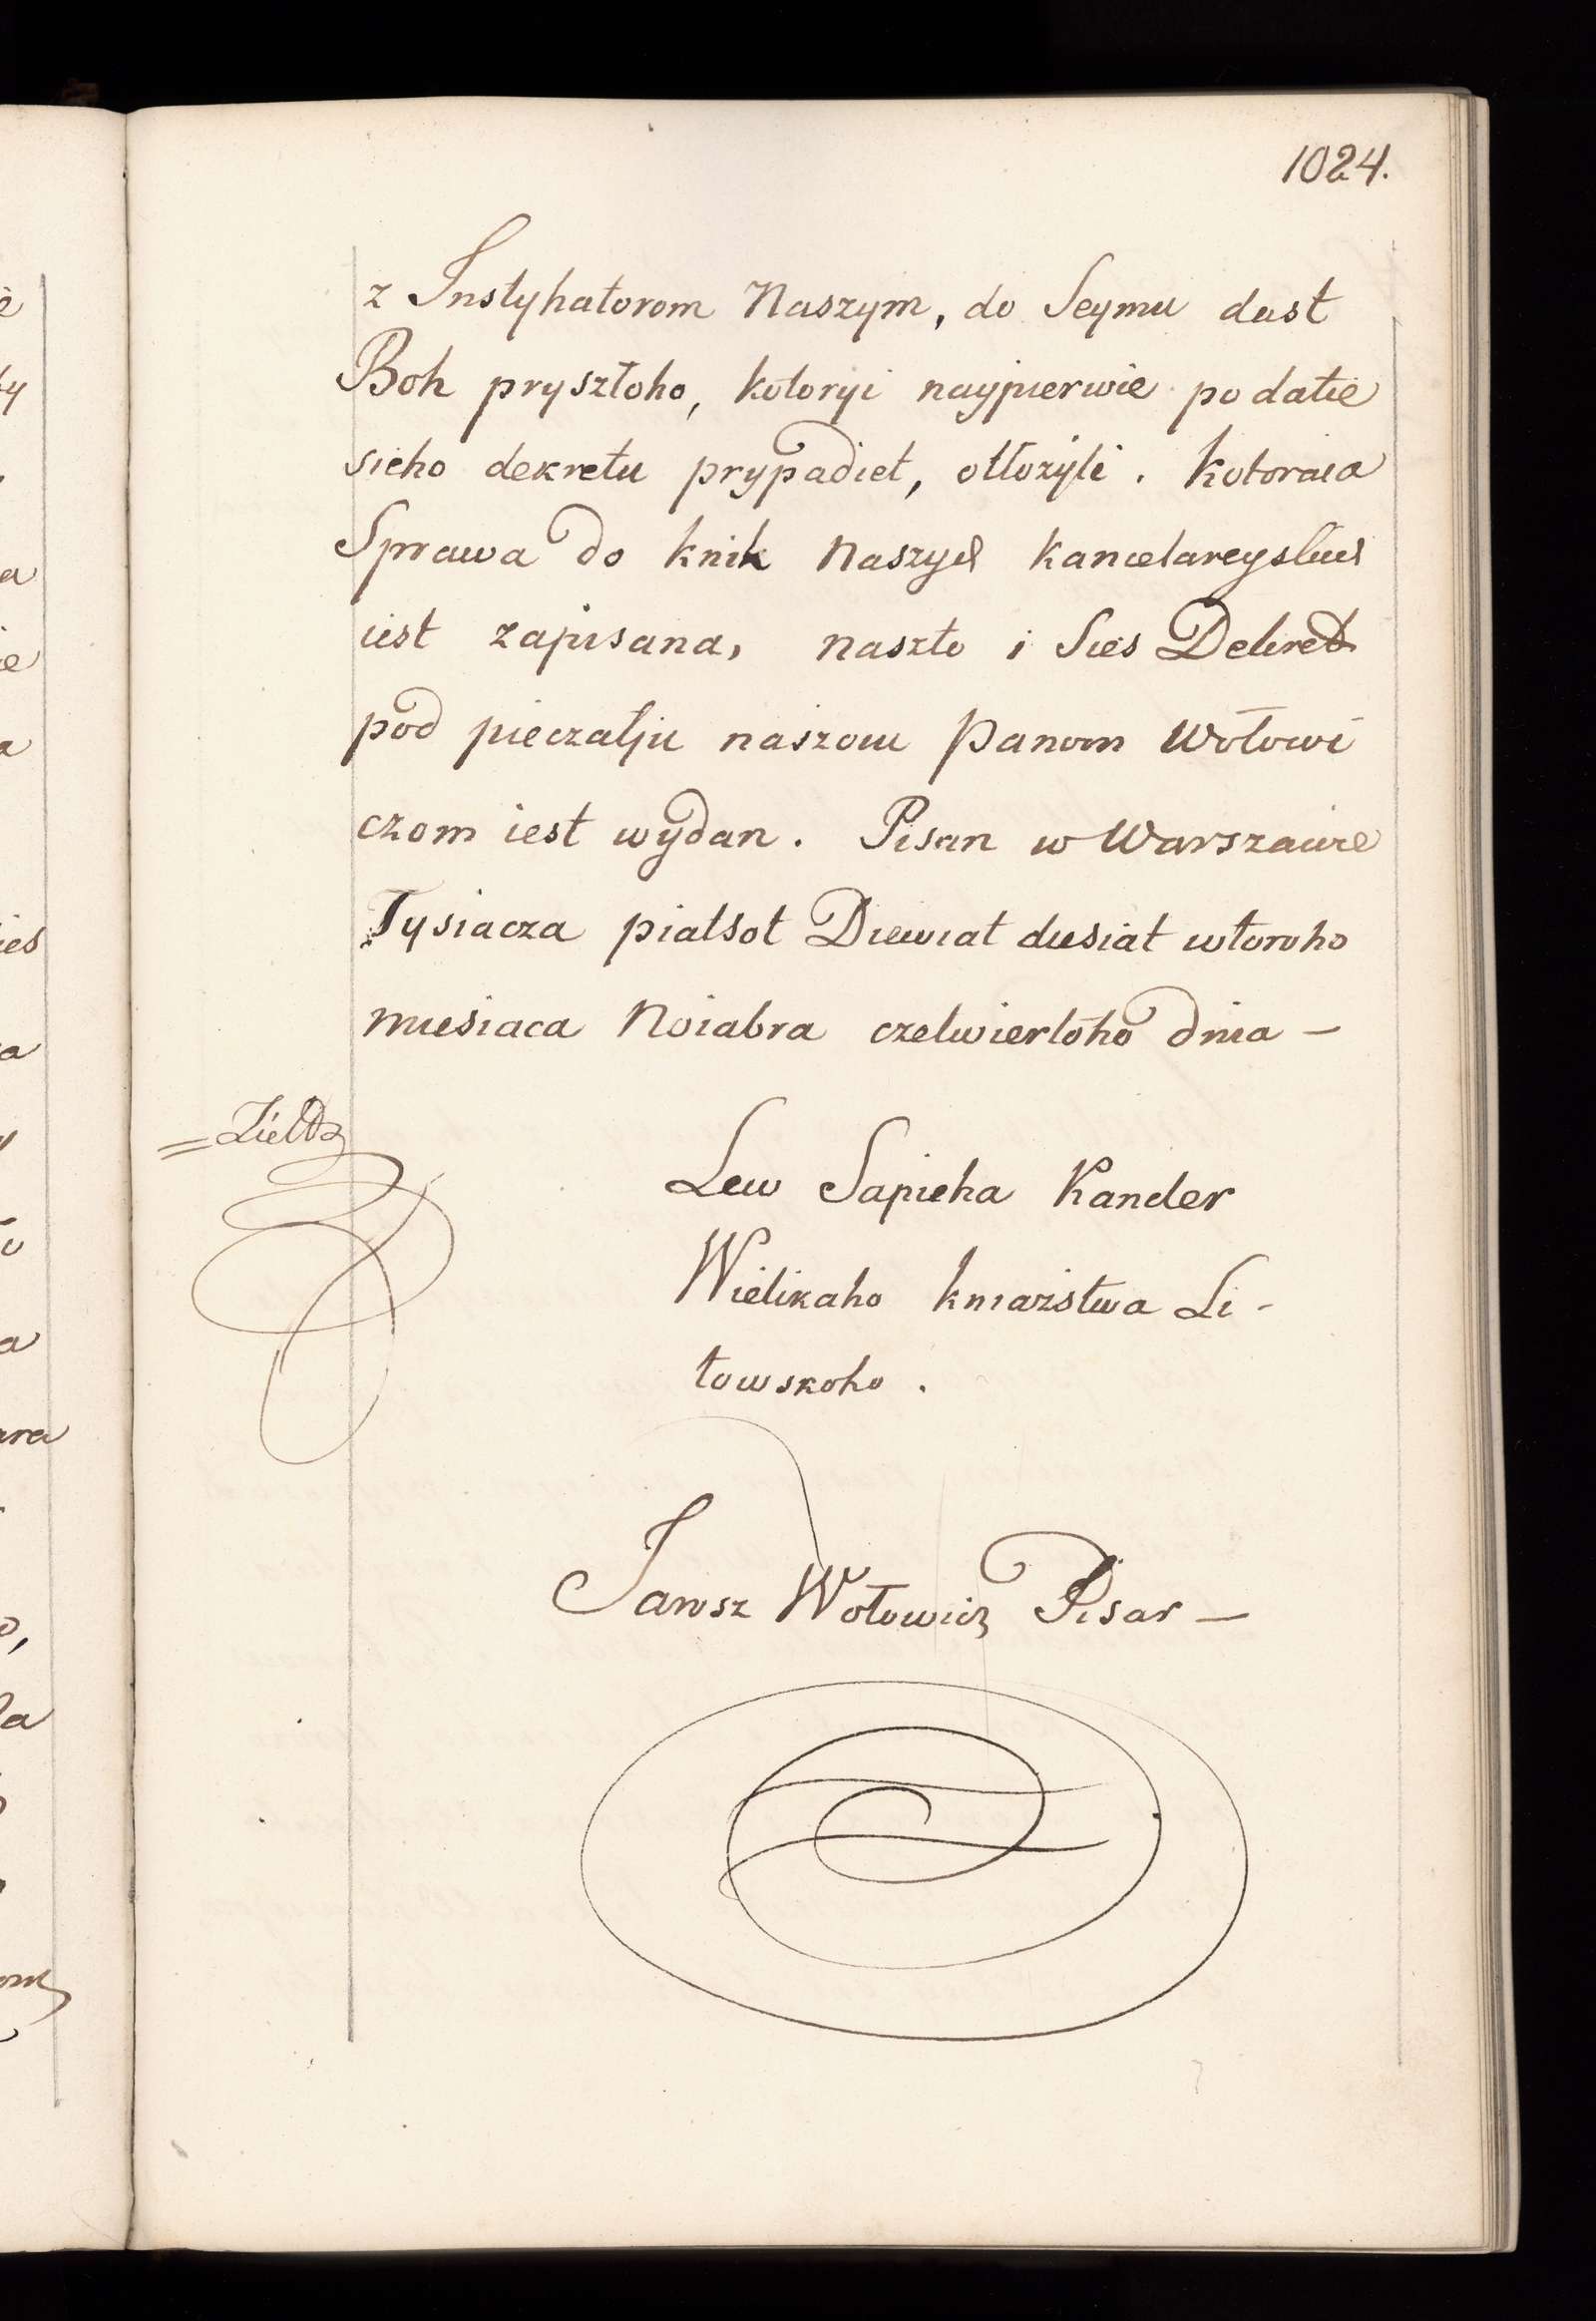 1024.
z Instyhatorom Naszym, do Seymu dast
Boh pryszłoho, kotoryi naypierwie po datie
sieho dekretu prypadiet, otłożyli. kotoraia
Sprawa do knih Naszych kancelareyskich
iest zapisana, naszto i Sies Dekret
pod pieczatju naszoiu Panom Wołowi
czom iest wydan. Pisan w Warszawie
Tysiacza piatsot Diewiat diesiat wtoroho
miesiaca Noiabra czetwiertoho dnia —
Lew Sapieha Kancler
Wielikaho kniażstwa Li-
towskoho.
Jarosz Wołowicz Pisar —